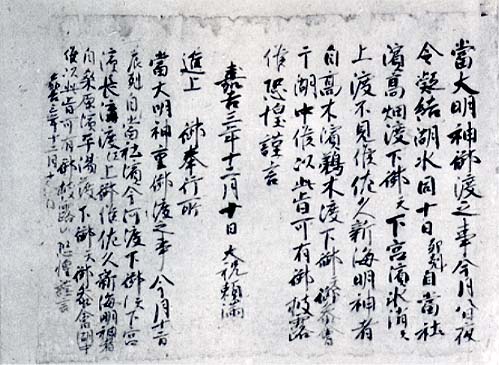 當大明神御渡之事今月八日夜
令凝結湖水同十日卯刻自當社
濱高畑渡下御又下宮濱氷消
上渡不見候佐久新海明神者
自高木濱鵜木渡下御
于湖中候以此旨可有御披露
候恐惶謹言
嘉吉三年十二月十日 大祝頼満
進上 御奉行所
當大明神重御渡之事 今月十一日
辰刻自當社濱今河渡下御又下宮
濱長瀬渡江上御候佐久新海明神者
自桑原濱平湯渡下御
候以此旨可有御披露候恐惶謹言
嘉吉三年十二月十